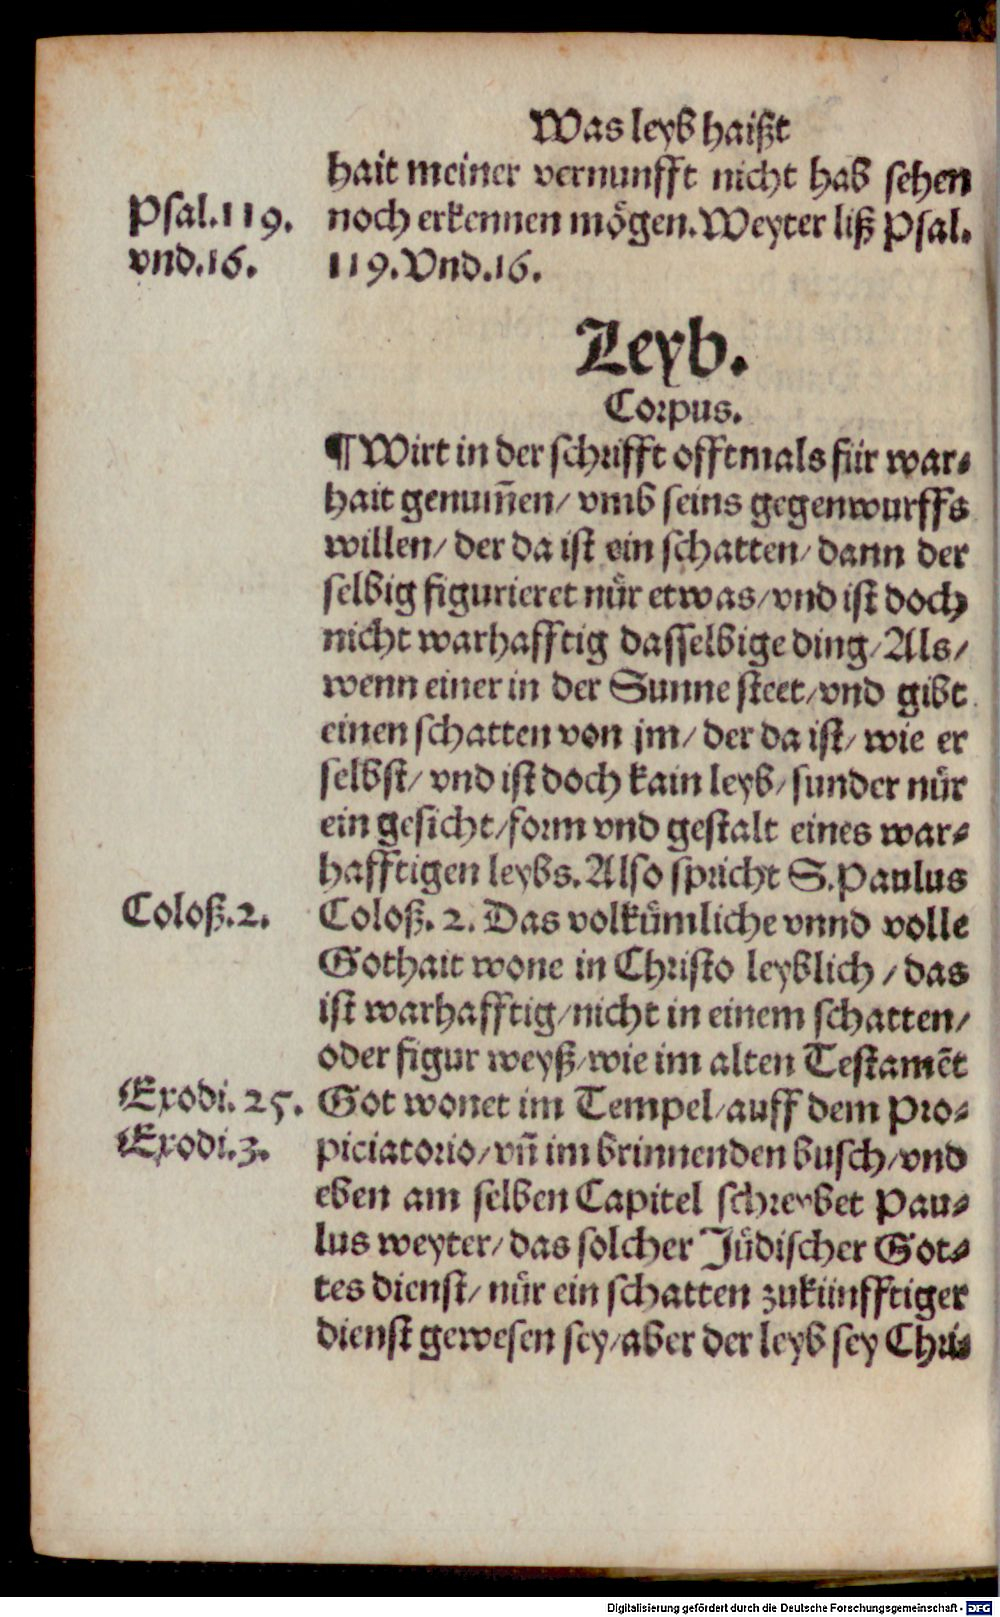 Was leyb haißt
hait meiner vernunfft nicht hab sehen
Psal. 119.
noch erkennen mögen. Weyter liß Psal.
vnd. 16.
119. Vnd. 16.
Leyb.
Corpus.
¶ Wirt in der schrifft offtmals für war⸗
hait genum̄en/ vmb seins gegenwurffs
willen/ der da ist ein schatten/ dann der
selbig figurieret nůr etwas/ vnd ist doch
nicht warhafftig dasselbige ding/ Als/
wenn einer in der Sunne steet/ vnd gibt
einen schatten von jm/ der da ist/ wie er
selbst/ vnd ist doch kain leyb/ sunder nůr
ein gesicht/ form vnd gestalt eines war⸗
hafftigen leybs. Also spricht S. Paulus
Coloß. 2.
Coloß. 2. Das volkům̈liche vnnd volle
Gothait wone in Christo leyblich/ das
ist warhafftig/ nicht in einem schatten/
oder figur weyß/ wie im alten Testamēt
Exodi. 25.
Got wonet im Tempel/ auff dem Pro⸗
Exodi. 3.
piciatorio/ vn̄ im brinnenden busch/ vnd
eben am selben Capitel schreybet Pau⸗
lus weyter/ das solcher Jüdischer Got⸗
tes dienst/ nůr ein schatten zukünfftiger
dienst gewesen sey/ aber der leyb sey Chri⸗
Digitalisierung gefördert durch die Deutsche Forschungsgemeinschaft - DFG